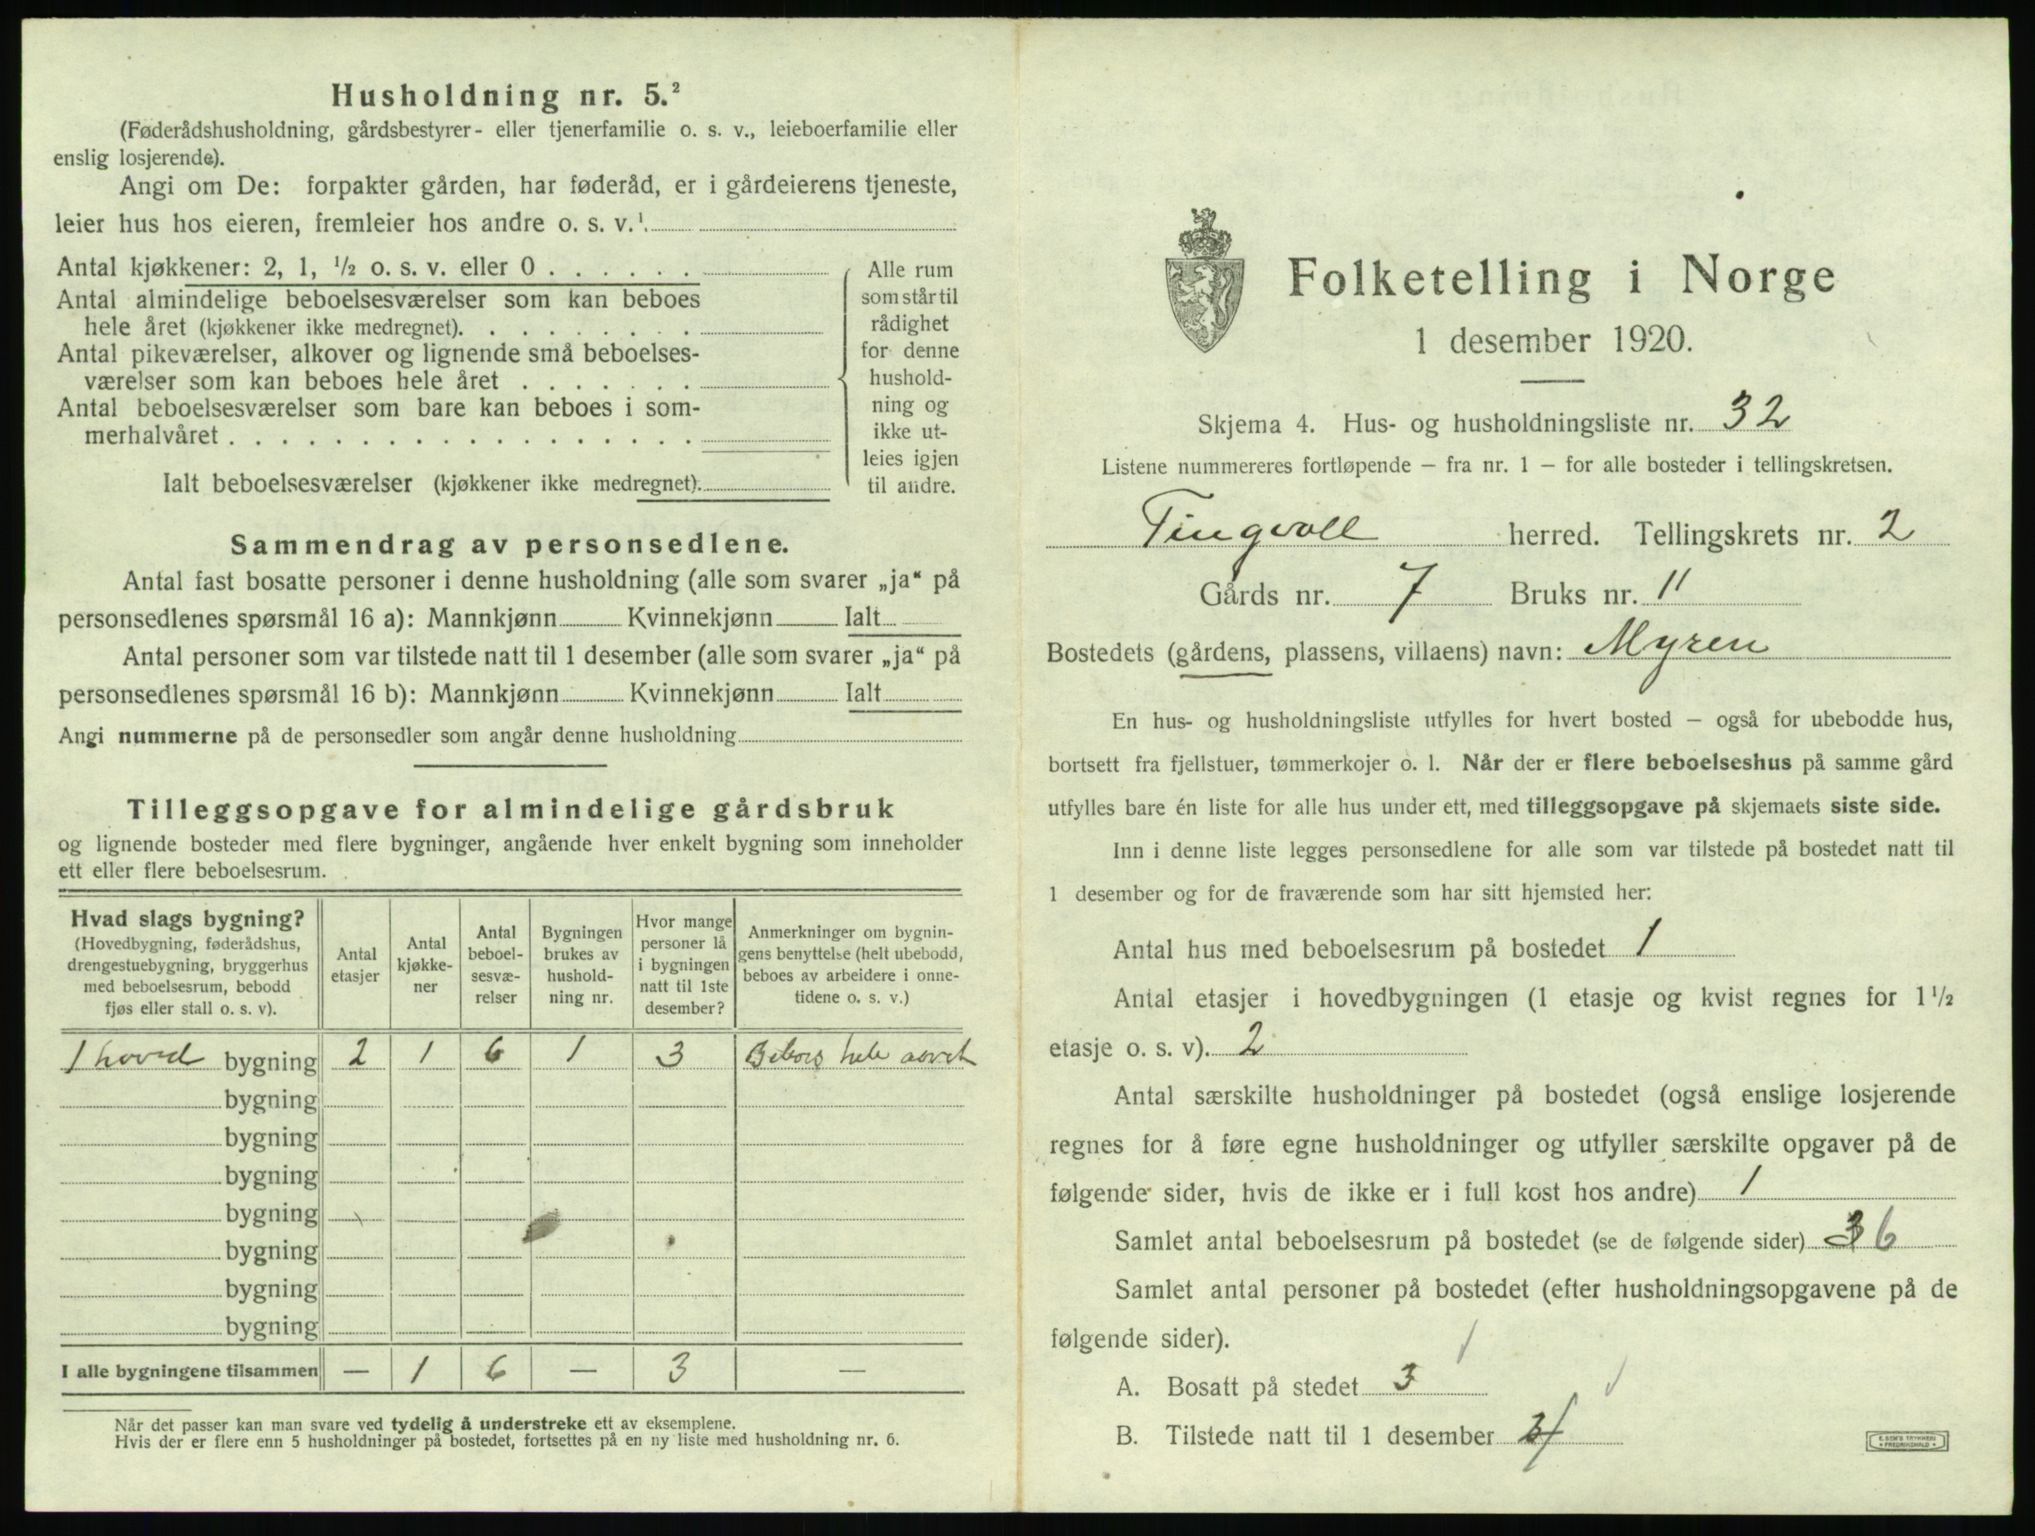 Husholdning nr. 5.²
(Føderådshusholdning, gårdsbestyrer- eller tjenerfamilie o. s. v., leieboerfamilie eller
enslig losjerende).
Angi om De: forpakter gården, har føderåd, er i gårdeierens tjeneste,
leier hus hos eieren, fremleier hos andre o. s. v.¹
Antal kjøkkener: 2, 1, ½ o. s. v. eller 0 . . . . . .
Antal almindelige beboelsesværelser som kan beboes
hele året (kjøkkener ikke medregnet). . . . . . . . .
Antal pikeværelser, alkover og lignende små beboelses-
værelser som kan beboes hele året . . . . . . .
Antal beboelsesværelser som bare kan beboes i som-
merhalvåret . . . . . . . . . . . . . . . . . .
Ialt beboelsesværelser (kjøkkener ikke medregnet).
Alle rum
som står til
rådighet
for denne
hushold-
ning og
ikke ut-
leies igjen
til andre.
Sammendrag av personsedlene.
Antal fast bosatte personer i denne husholdning (alle som svarer „ja“ på
personsedlenes spørsmål 16 a): Mannkjønn Kvinnekjønn Ialt
Antal personer som var tilstede natt til 1 desember (alle som svarer „ja“ på
personsedlenes spørsmål 16 b): Mannkjønn Kvinnekjønn Ialt
Angi nummerne på de personsedler som angår denne husholdning
Tilleggsopgave for almindelige gårdsbruk
og lignende bosteder med flere bygninger, angående hver enkelt bygning som inneholder
ett eller flere beboelsesrum.
Hvad slags bygning?
(Hovedbygning, føderådshus,
drengestuebygning, bryggerhus
med beboelsesrum, bebodd
fjøs eller stall o. s. v).
Antal
etasjer
Antal
kjøkke-
ner
Antal
beboel-
sesvæ-
relser
Bygningen
brukes av
hushold-
ning nr.
Hvor mange
personer lå
i bygningen
natt til 1ste
desember?
Anmerkninger om bygnin-
gens benyttelse (helt ubebodd,
beboes av arbeidere i onne-
tidene o. s. v.)
1 hoved bygning 2 1 6 1 3 Beboes hele aaret
bygning
bygning
bygning
bygning
bygning
bygning
bygning
I alle bygningene tilsammen — 1 6 — 3 —
Når det passer kan man svare ved tydelig å understreke ett av eksemplene.
Hvis der er flere enn 5 husholdninger på bostedet, fortsettes på en ny liste med husholdning nr. 6.
Folketelling i Norge
1 desember 1920.
Skjema 4. Hus- og husholdningsliste nr. 32
Listene nummereres fortløpende – fra nr. 1 – for alle bosteder i tellingskretsen.
Tingvoll herred. Tellingskrets nr. 2
Gårds nr. 7 Bruks nr. 11
Bostedets (gårdens, plassens, villaens) navn: Myren
En hus- og husholdningsliste utfylles for hvert bosted – også for ubebodde hus,
bortsett fra fjellstuer, tømmerkojer o. l. Når der er flere beboelseshus på samme gård
utfylles bare én liste for alle hus under ett, med tilleggsopgave på skjemaets siste side.
Inn i denne liste legges personsedlene for alle som var tilstede på bostedet natt til
1 desember og for de fraværende som har sitt hjemsted her:
Antal hus med beboelsesrum på bostedet 1
Antal etasjer i hovedbygningen (1 etasje og kvist regnes for 1½
etasje o. s. v). 2
Antal særskilte husholdninger på bostedet (også enslige losjerende
regnes for å føre egne husholdninger og utfyller særskilte opgaver på de
følgende sider, hvis de ikke er i full kost hos andre) 1
Samlet antal beboelsesrum på bostedet (se de følgende sider) 6
Samlet antal personer på bostedet (efter husholdningsopgavene på de
følgende sider).
A. Bosatt på stedet 3
B. Tilstede natt til 1 desember
E. SEM'S TRYKKERI
FREDRIKSHALD